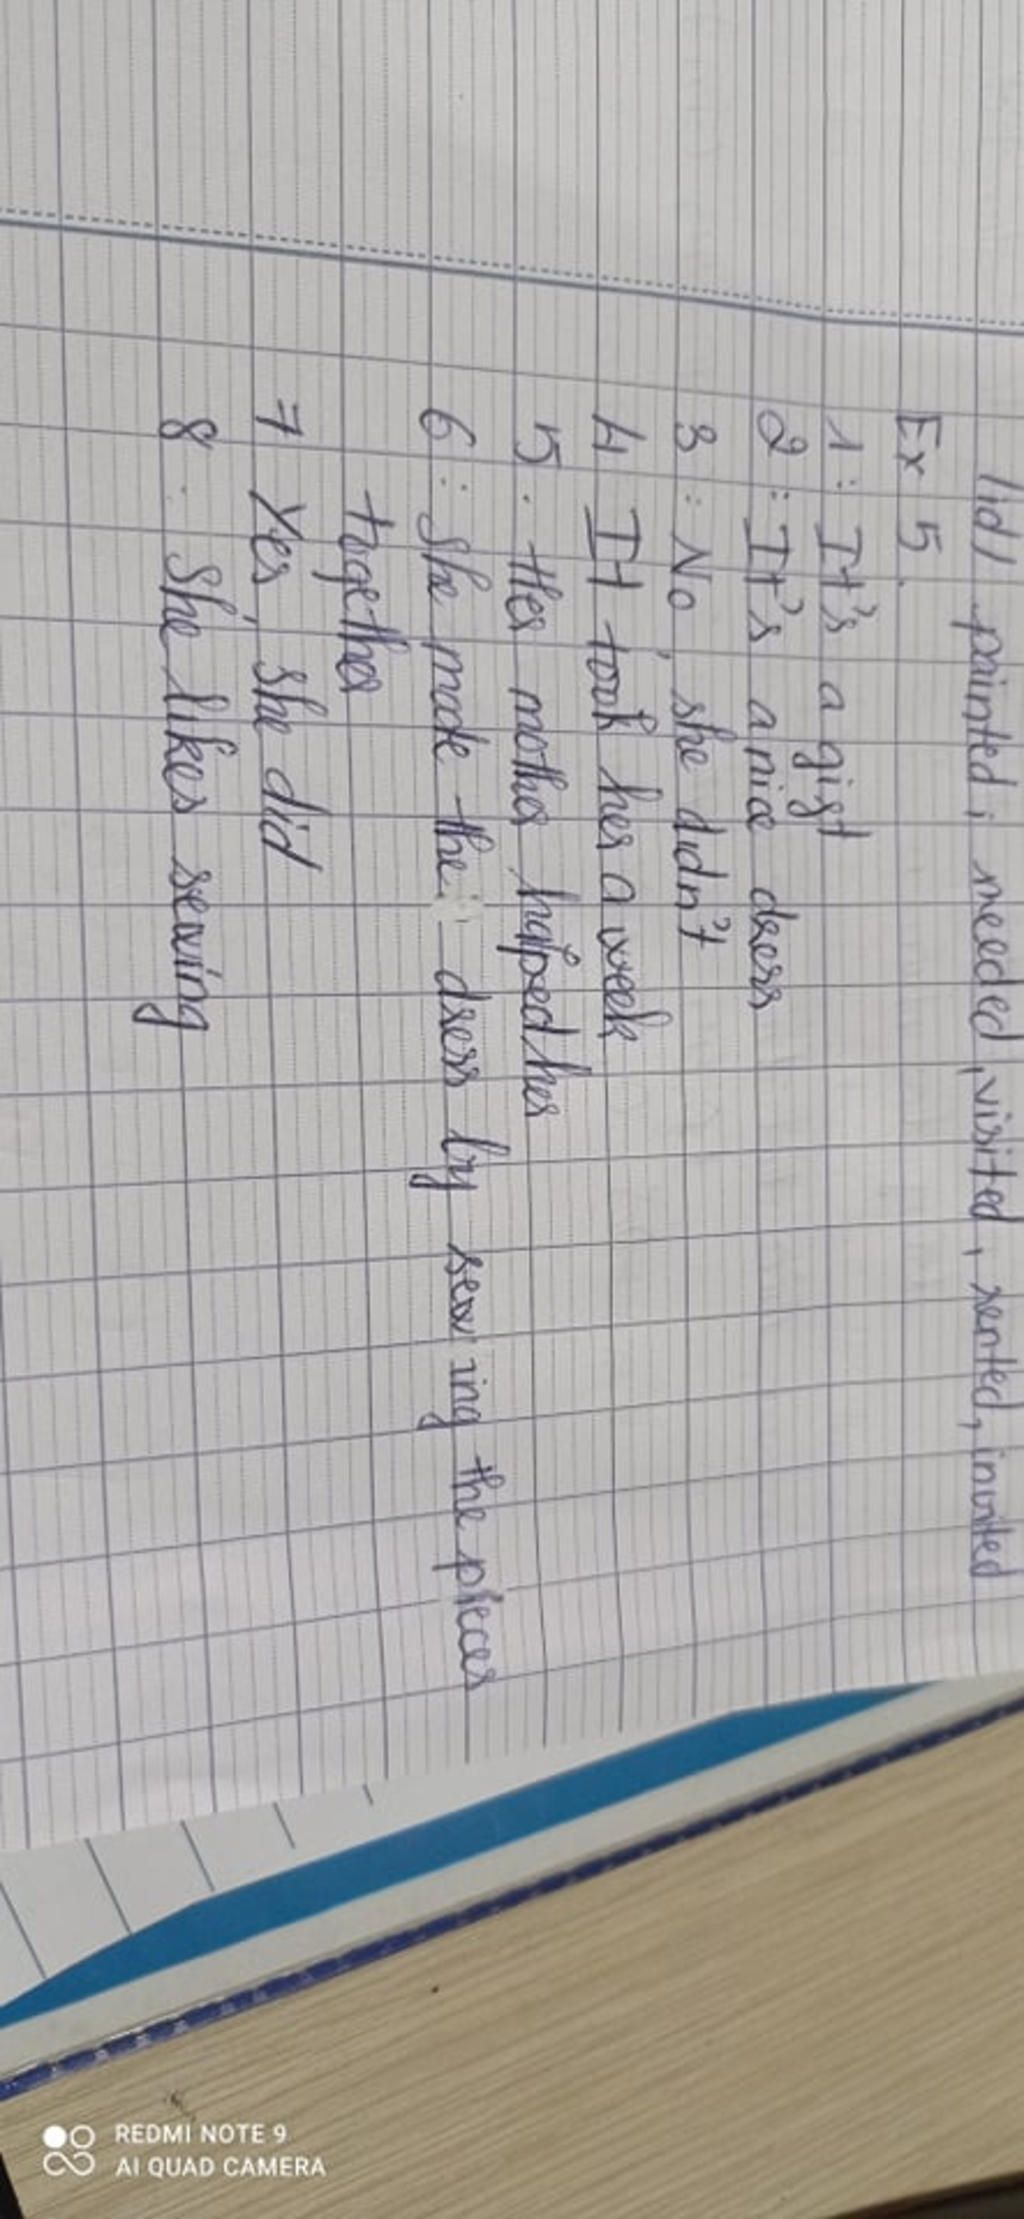 /id/ painted, needed, visited, rented, invited
Ex 5.
1: It's a gift
2: It's a nice dress
3: No, she didn't
4 It took her a week
5. Her mother helped her
6: She made the dress by sewing the pieces
together
7 Yes, she did
8. She likes sewing
REDMI NOTE 9
AI QUAD CAMERA